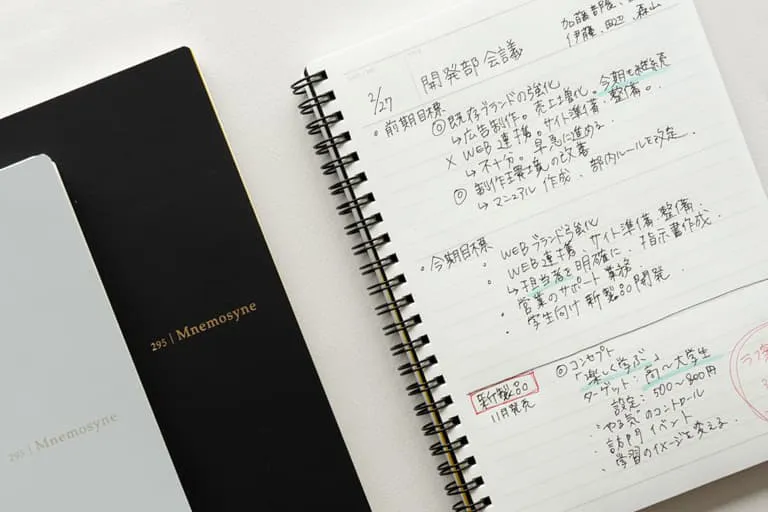 295 | Mnemosyne
295 | Mnemosyne
加藤部長
伊藤、田辺、森山
2/27
開発部会議
・前期目標
◎ 既存ブランドの強化
↳ 広告制作。売上増化。今期も継続
× WEB連携。サイト準備・整備。
↳ 不十分。早急に進める
◎ 制作環境の改善
↳ マニュアル作成、部内ルールを改定
・今期目標
・WEBブランド強化
・WEB連携、サイト準備、整備。
↳ 担当者を明確に。指示書作成。
・営業のサポート業務
・学生向け新製品開発。
新製品
11月発売
◎ コンセプト
「楽しく学ぶ」
ターゲット:高〜大学生
設定:500〜800円
・"やる気"のコントロール
・訪問イベント
・学習のイメージを変える。